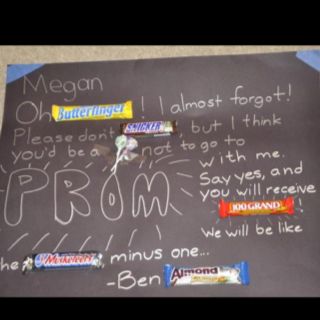 Megan
Oh Butterfinger! I almost forgot!
Please don't SNICKER, but I think
you'd be a not to go to
PROM with me.
Say yes, and
you will receive
100 GRAND!
We will be like
he 3 Musketeers minus one...
-Ben Almond